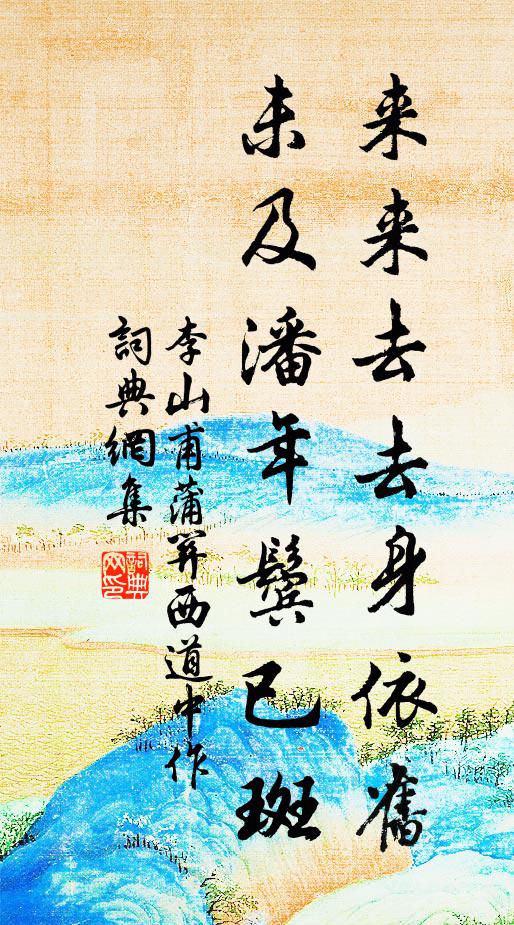 来来去去身依舊
未及潘年鬢已斑
李山甫蒲關西道中作
詞典網集
詞典网印